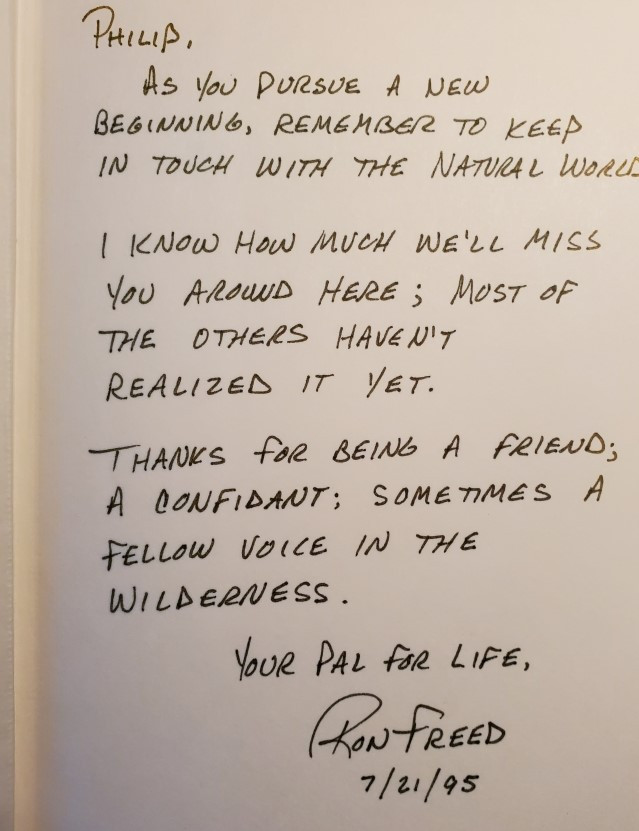 PHILIP,
AS YOU PURSUE A NEW
BEGINNING, REMEMBER TO KEEP
IN TOUCH WITH THE NATURAL WORLD
I KNOW HOW MUCH WE'LL MISS
YOU AROUND HERE; MOST OF
THE OTHERS HAVEN'T
REALIZED IT YET.
THANKS FOR BEING A FRIEND;
A CONFIDANT; SOMETIMES A
FELLOW VOICE IN THE
WILDERNESS.
YOUR PAL FOR LIFE,
RON FREED
7/21/95